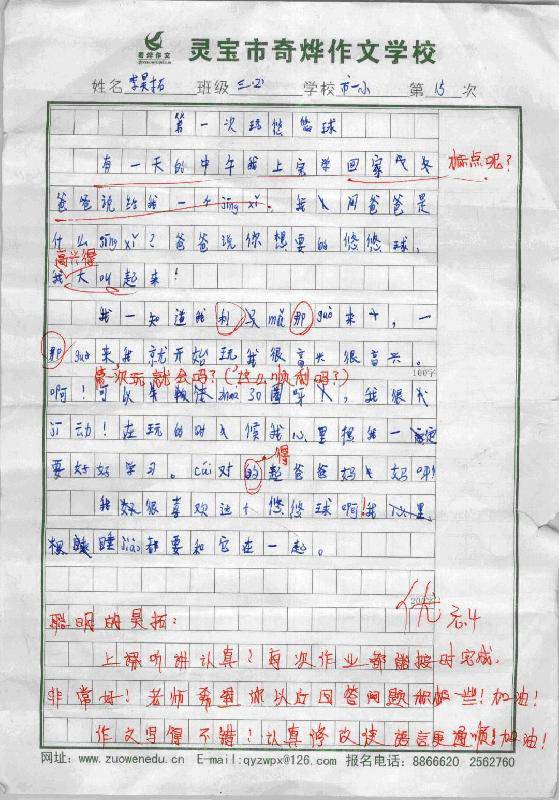 灵宝市奇烨作文学校
姓名 李昊拓 班级 三.二 学校 市一小 第 15 次
第一次玩悠悠球
有一天的中午我上完学回家 标点呢？
爸爸说给我一个jīng xǐ。我问爸爸是
什么jīng xǐ？爸爸说你想要的悠悠球，
高兴得
我大叫起来！
我一知道我利又mǎ那guò来，一
那guò来我就开始玩我很高兴很高兴。
第一次玩就会吗？（这么顺利吗？） 100字
啊！可以半圈30圈呀，我很
jī动！在玩的时候我心里想我一定
得
要好好学习。cái对的起爸爸妈妈呀！
我很喜欢这个悠悠球啊！我心里
想睡jiào都要和它在一起。
200字
优 元.4
聪明的昊拓：
上课听讲认真？每次作业都能按时完成，
非常好！老师希望你以后回答问题积极一些！加油！
作文写得不错！认真修改使语言更通顺！加油！
网址：www.zuowenedu.cn E-mail:qyzwpx@126.com 报名电话：8866620 2562760